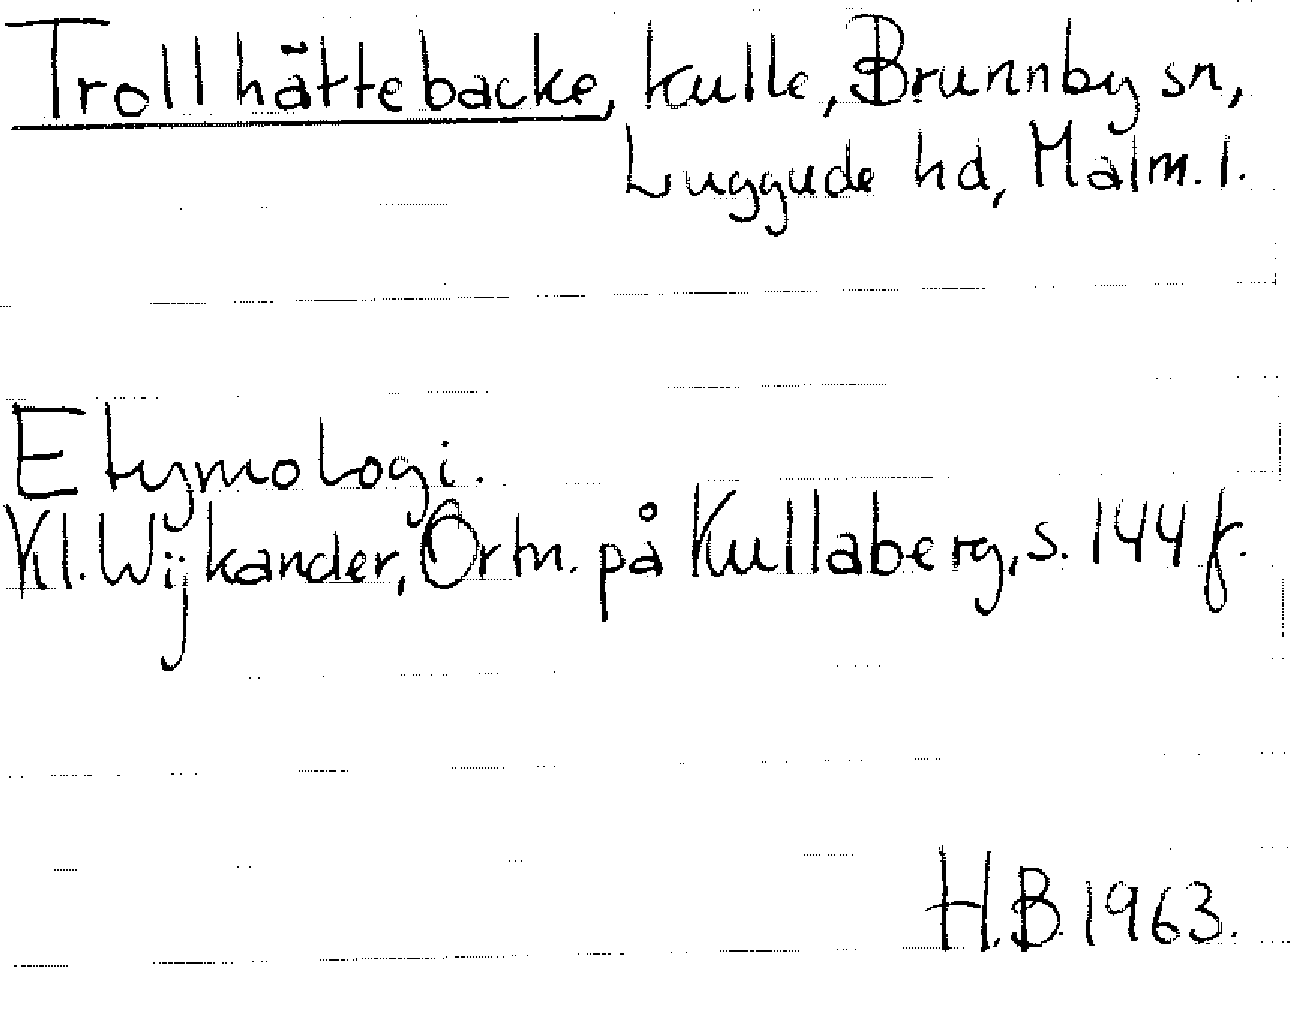 Trollhättebacke, kulle, Brunnby sn,
Luggude hd, Malm. l.
Etymologi.
Kl. Wijkander, Ortn. på Kullaberg, s. 144 f.
H.B. 1963.